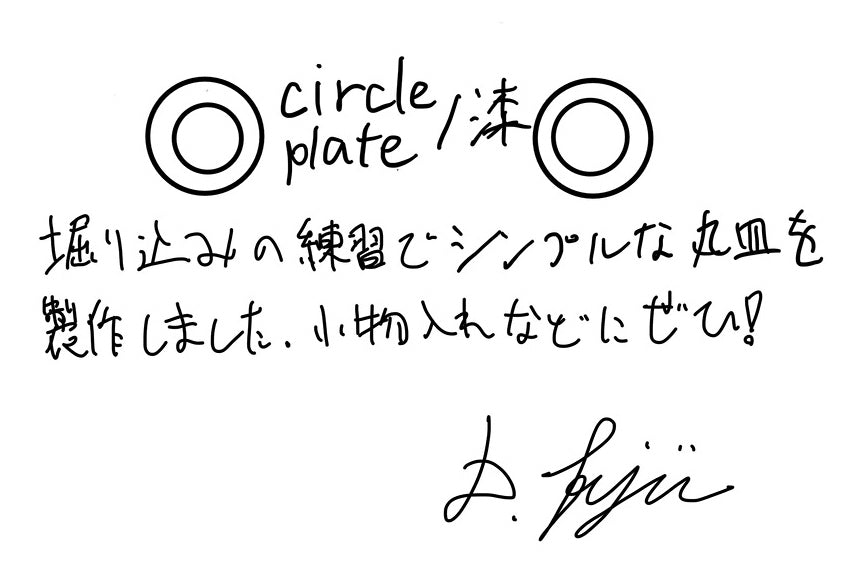 circle
plate / 漆
堀り込みの練習でシンプルな丸皿を
製作しました. 小物入れなどにぜひ!
D. Fujii